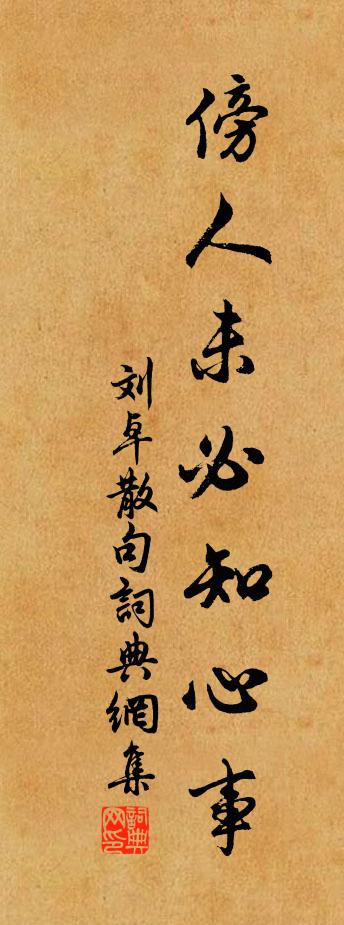 傍人未必知心事
刘卓散句詞典網集
詞典网印